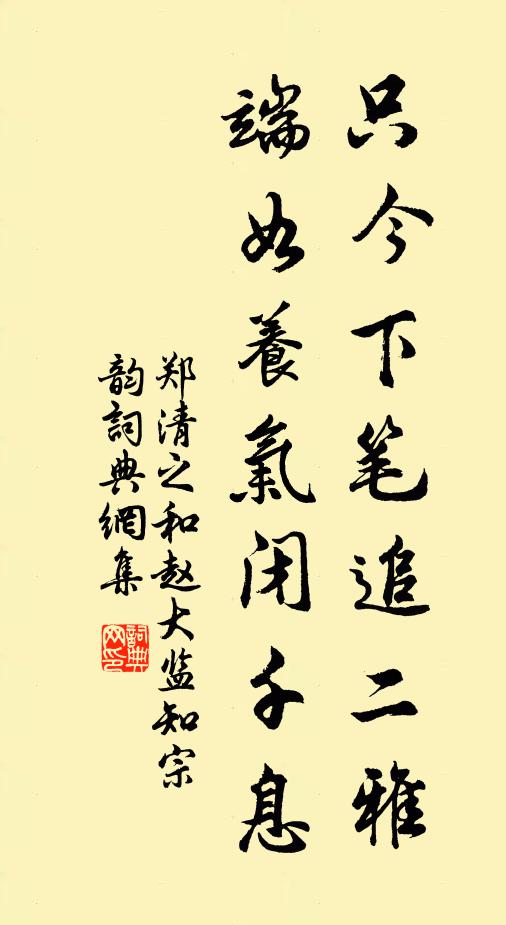 只今下笔追二雅
端如養氣闭千息
郑清之和赵大监知宗
韵詞典網集
詞典网印